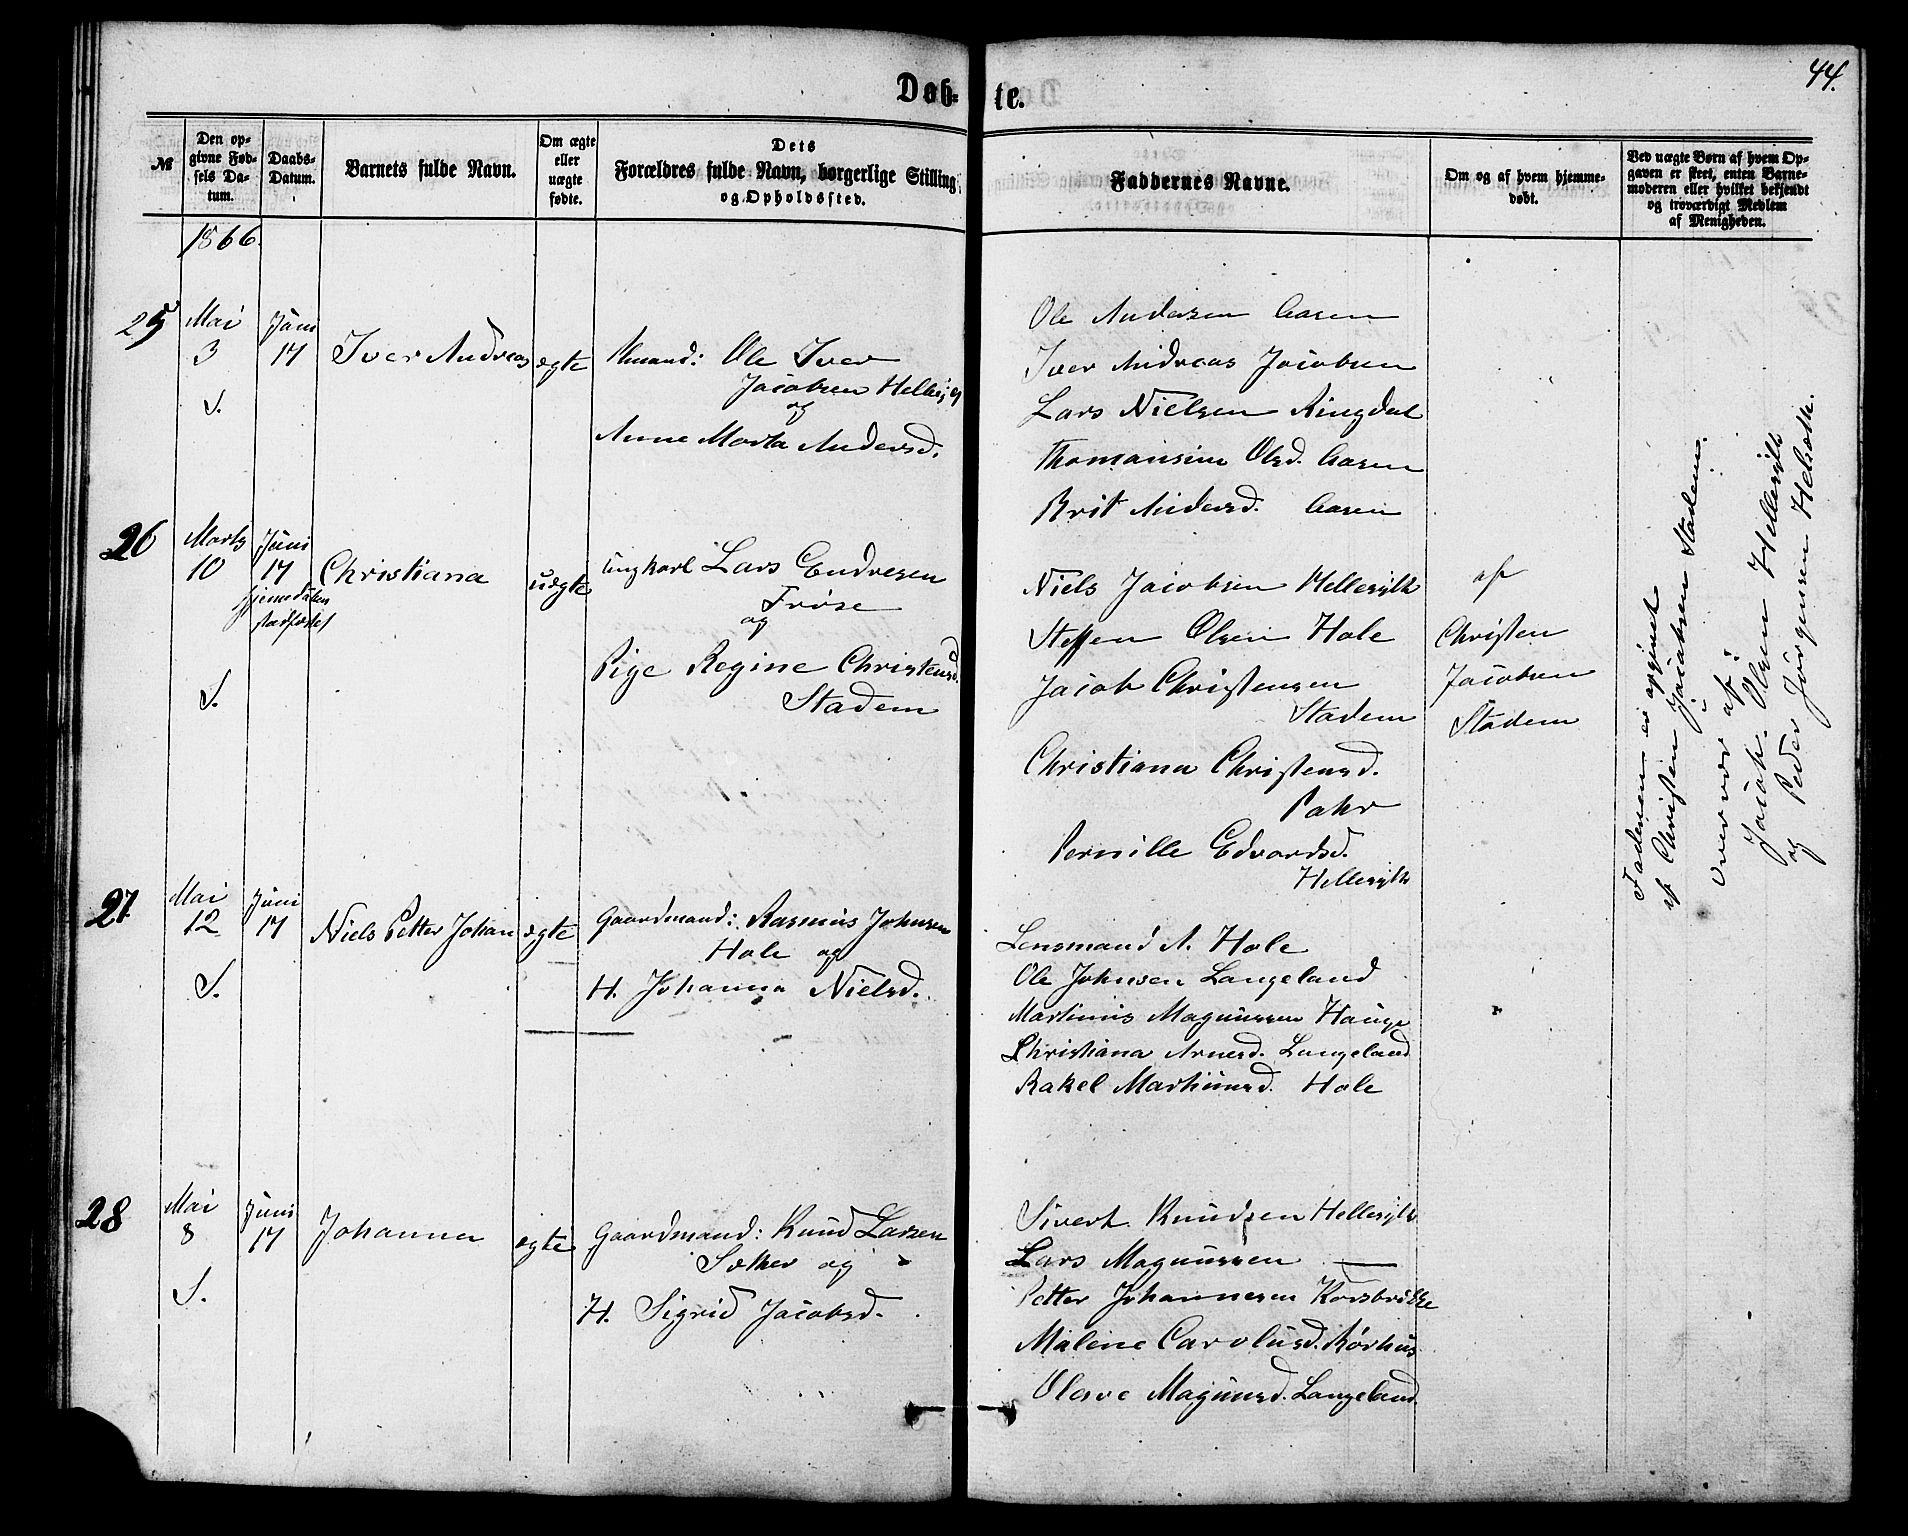 44.
Døb-
te.
№
Den op-
givne Fød-
sels Da-
tum.
Daabs-
Datum.
Barnets fulde Navn.
Om ægte
eller
uægte
fødte.
Dets
Forældres fulde Navn, borgerlige Stilling
og Opholdssted.
Faddernes Navne.
Om og af hvem hjemme-
døbt.
Ved uægte Børn af hvem Op-
gaven er skeet, enten Barne-
moderen eller hvilket bekjendt
og troværdigt Medlem
af Menigheden.
1866.
25
Mai
3
S.
Juni
17
Iver Andreas
ægte
Ole Iver
Jacobsen
og
Anne Marta Andersd.
Ole Andersen Aasen
Iver Andreas Jacobsen
Lars Nielsen Ringdal
Thomansine Olsd. Aasen
Brit Andersd. Aasen
26
Marts
10
S.
Juni
17
hjemmedaaben
stadfæstet
Christiana
uægte
Ungkarl Lars Endresen
Frøse
og
Pige Regine Christensd.
Stadem
Niels Jacobsen Hellesylt
Steffen Olsen Hole
Jacob Christensen
Stadem
Christiana Christensd.
Pernille Edvardsd.
Hellesylt
af
Christen
Jacobsen
Stadem
Faderen er opgivet
af Christen Jacobsen Stadem.
Overvær af:
Jacob Olsen Hellesylt
og Peder Jørgensen
27
Mai
12
S.
Juni
17
Niels Petter Johan
ægte
Gaardmand: Rasmus Johnsen
Hole og
H. Johanna Nielsd.
Lensmand A. Hole
Ole Johnsen Langeland
Martinus Magnussen Hauge
Christiana Arnesd. Langeland
Rakel Martinusd. Hole
28
Mai
8
S.
Juni
17
Johanna
ægte
Gaardmand: Knud Larsen
Sæther og
H. Sigrid Jacobsd.
Sivert Knudsen Hellesylt
Lars Magnussen —
Petter Johannesen Korsbrekke
Malene Carolusd. Rørhus
Olave Magnusd. Langeland